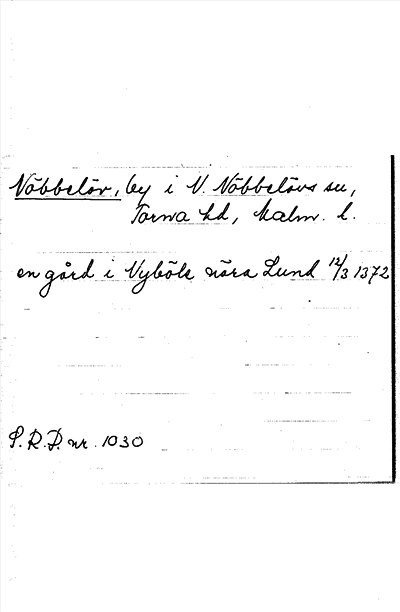 Nöbbelöv, by i N. Nöbbelövs sn,
Torna hd, Malm. l.
en gård i Nyböle nära Lund 12/3 1372
S.R.P. nr. 1030